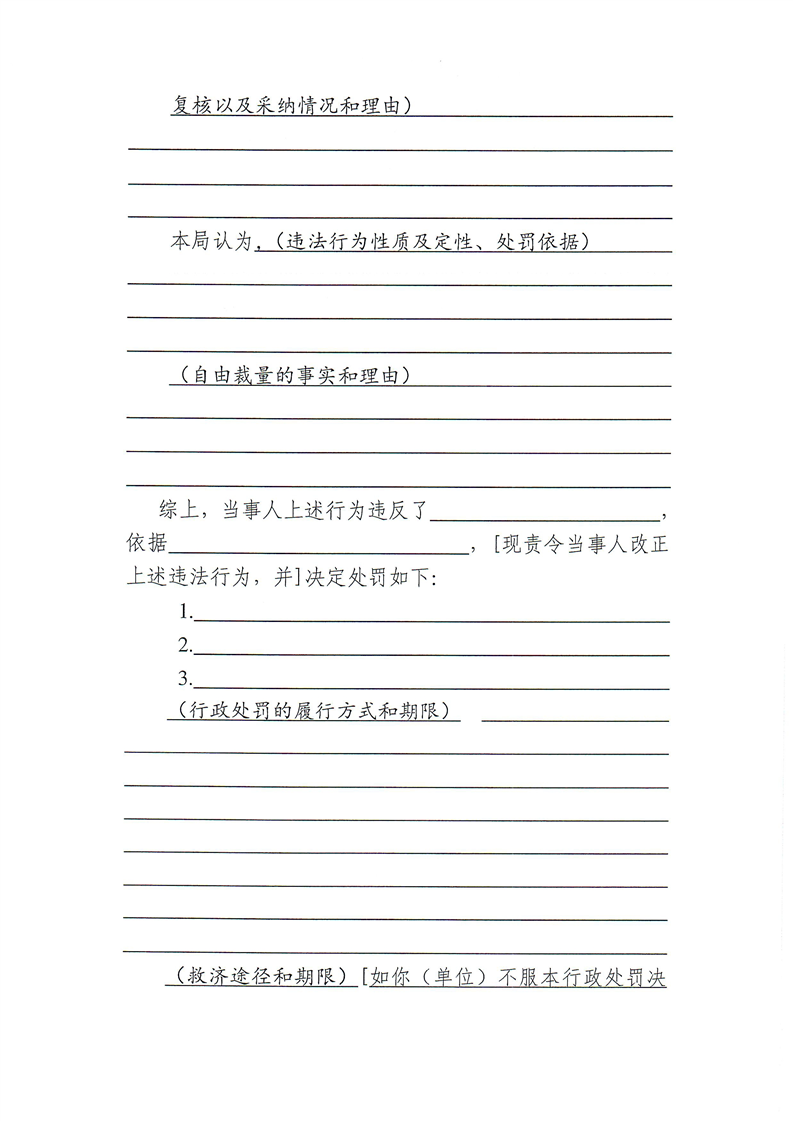 复核以及采纳情况和理由）
本局认为，（违法行为性质及定性、处罚依据）
（自由裁量的事实和理由）
综上，当事人上述行为违反了____________________，
依据__________________________，[现责令当事人改正
上述违法行为，并]决定处罚如下：
1.
2.
3.
（行政处罚的履行方式和期限）
（救济途径和期限）[如你（单位）不服本行政处罚决